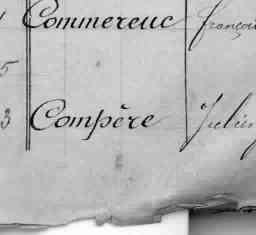 Commereuc françoi
5
3 Compère Julien